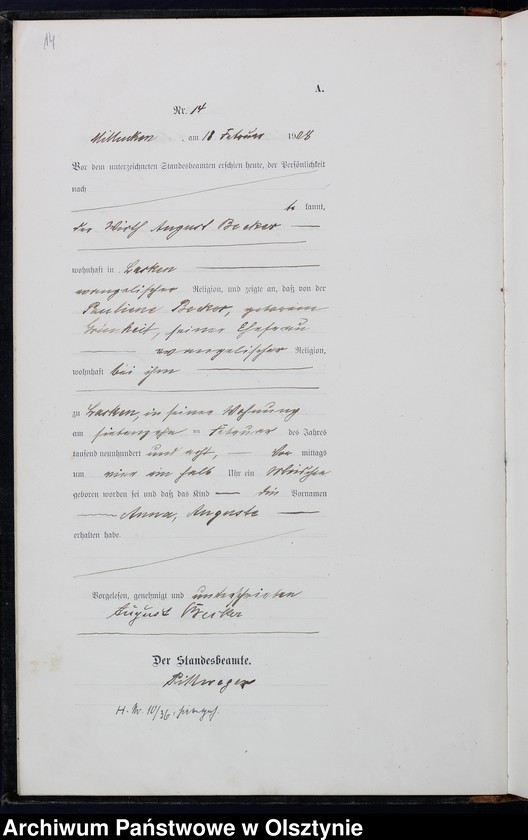 14
A.
Nr. 14
am 18 Februar 1908
Vor dem unterzeichneten Standesbeamten erschien heute, der Persönlichkeit
nach
be kannt,
der Wirth August Becker
wohnhaft in Larken
evangelischer Religion, und zeigte an, daß von der
Pauline Becker, geborene
seiner Ehefrau
evangelischer Religion,
wohnhaft bei ihm
zu Larken, in seiner Wohnung
am siebenzehn ten Februar des Jahres
tausend neunhundert und acht, Vor mittags
um vier ein halb Uhr ein Mädchen
geboren worden sei und daß das Kind die Vornamen
Anna, Auguste
erhalten habe.
Vorgelesen, genehmigt und unterschrieben
August Becker
Der Standesbeamte.
H. Nr. 10/36
Archiwum Państwowe w Olsztynie